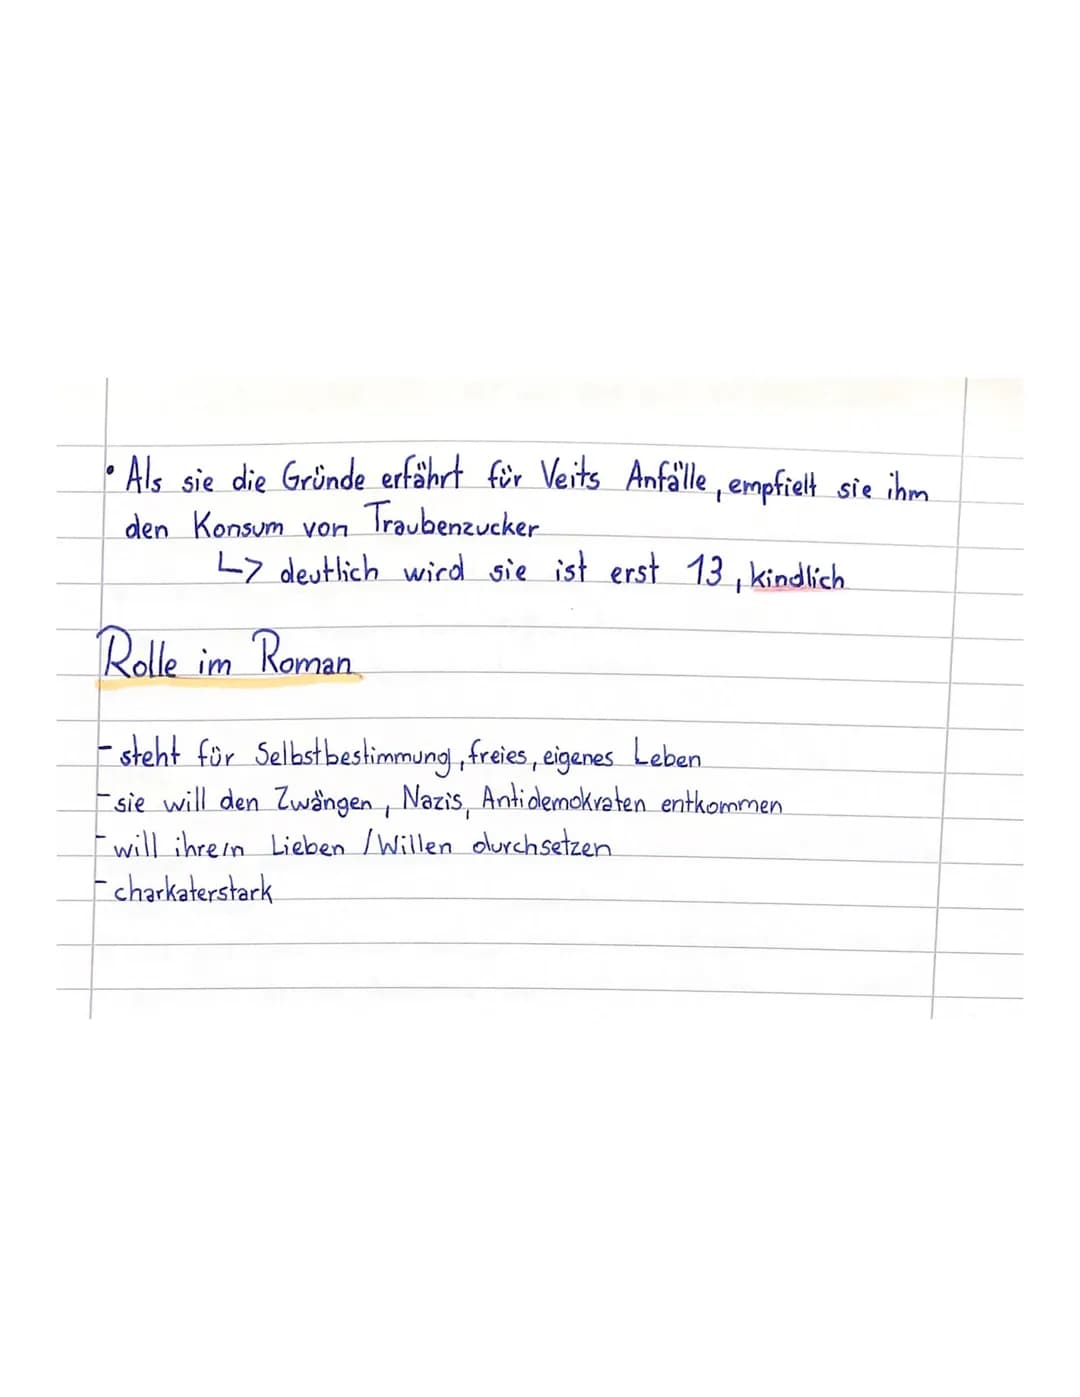 • Als sie die Gründe erfährt für Veits Anfälle, empfielt sie ihm
den Konsum von Traubenzucker
↳ deutlich wird sie ist erst 13, kindlich
Rolle im Roman
- steht für Selbstbestimmung, freies, eigenes Leben
- sie will den Zwängen, Nazis, Antidemokraten entkommen
- will ihre/n Lieben / Willen durchsetzen
- charkaterstark